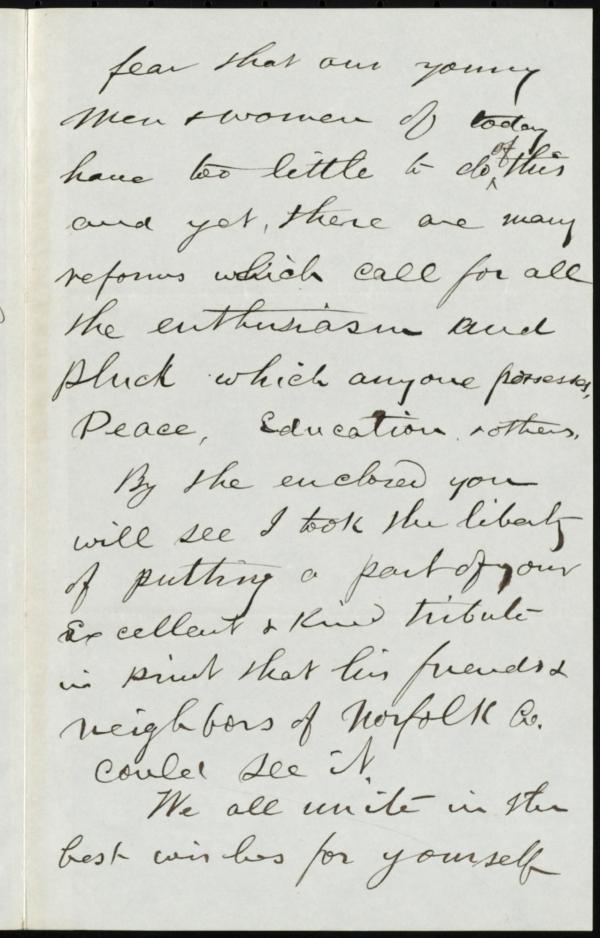 fear that our young
men & women of today
have too little to do ^of this
and yet, there are many
reforms which call for all
the enthusiasm and
pluck which anyone possesses,
Peace, Education, & others.
By the enclosed you
will see I took the liberty
of putting a part of your
Excellent & Kind tribute
in print that his friends &
neighbors of Norfolk Co.
could see it.
We all unite in the
best wishes for yourself